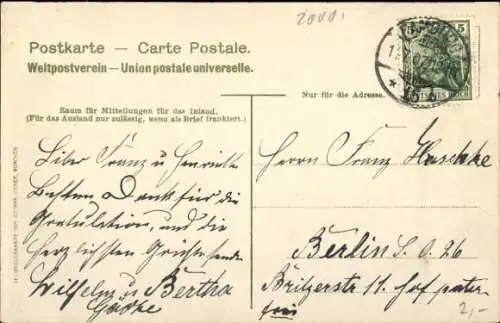 2000!
Postkarte — Carte Postale.
Weltpostverein — Union postale universelle.
5
Nur für die Adresse.
Raum für Mitteilungen für das Inland.
(Für das Ausland nur zulässig, wenn als Brief frankiert.)
Lieber Franz u, Henriette
Besten Dank für die
Gratulation, und die
herzlichsten Grüße sendet
Wilhelm u Bertha
Herrn Franz Haschke
Berlin S. O. 26
Britzerstr 11. Hof parter
2,-